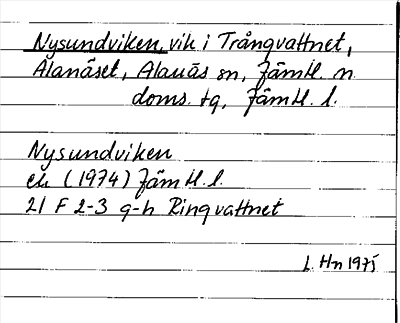 Nysundviken, vik i Trångvattnet,
Alanäset, Alanäs sn, Jämtl. n.
doms. tg, Jämtl. l.
Nysundviken
ek (1974) Jämtl. l.
21 F 2-3 g-h Ringvattnet
L Hn 1975